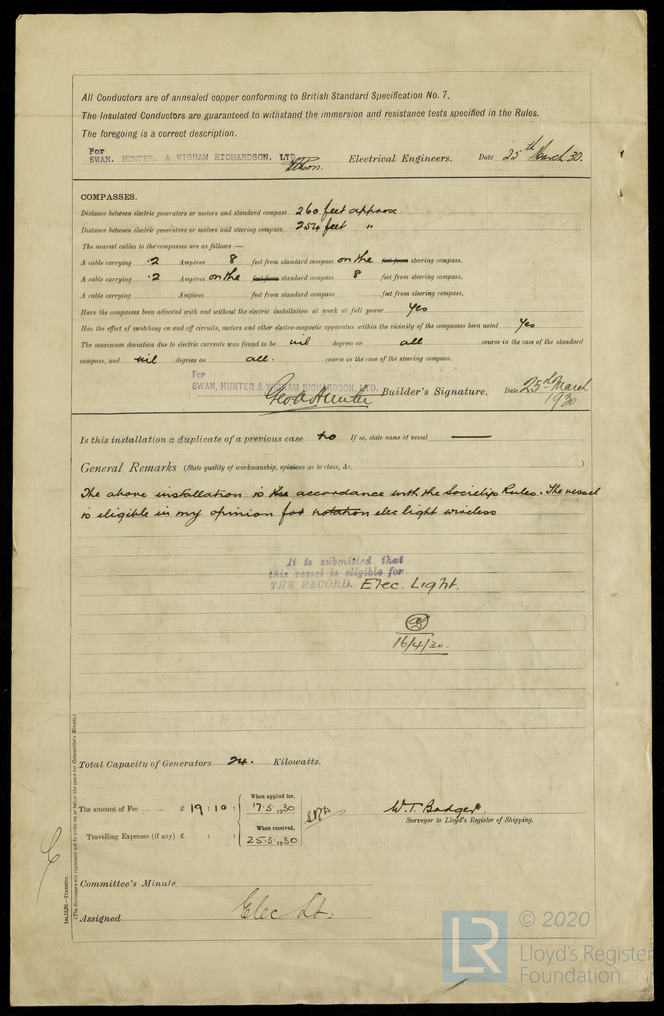 All Conductors are of annealed copper conforming to British Standard Specification No. 7.
The Insulated Conductors are guaranteed to withstand the immersion and resistance tests specified in the Rules.
The foregoing is a correct description.
For
SWAN, HUNTER, & WIGHAM RICHARDSON, LTD. Electrical Engineers. Date 25th March 30.
COMPASSES.
Distance between electric generators or motors and standard compass 260 feet approx.
Distance between electric generators or motors and steering compass. 254 feet "
The nearest cables to the compasses are as follows:—
A cable carrying .2 Ampères 8 feet from standard compass on the feet from steering compass.
A cable carrying .2 Ampères on the feet from standard compass 8 feet from steering compass.
A cable carrying Ampères feet from standard compass feet from steering compass.
Have the compasses been adjusted with and without the electric installation at work at full power Yes
Has the effect of switching on and off circuits, motors and other electro-magnetic apparatus within the vicinity of the compasses been noted Yes
The maximum deviation due to electric currents was found to be nil degrees on all course in the case of the standard
compass, and nil degrees on all. course in the case of the steering compass.
For
SWAN, HUNTER & WIGHAM RICHARDSON, LTD.
Geo A Hunter Builder's Signature. Date 25th March
1930
Is this installation a duplicate of a previous case no If so, state name of vessel —
General Remarks (State quality of workmanship, opinions as to class, &c. )
The above installation is accordance with the Societys Rules. The vessel
is eligible in my opinion for notation elec light wireless
It is submitted that
this vessel is eligible for
THE RECORD. Elec. Light.
16/4/30.
Total Capacity of Generators 24. Kilowatts.
The amount of Fee ... ... £ 19 : 10 :
When applied for,
17.3.1930
Travelling Expenses (if any) £ : :
When received,
25.3.1930
W.T. Badger.
Surveyor to Lloyd's Register of Shipping.
Committee's Minute
Assigned Elec Lt.
(The Surveyors are requested not to write on or below the space for Committee's Minute.)
1m,11,28.—Transfer.
LR © 2020
Lloyd's Register
Foundation